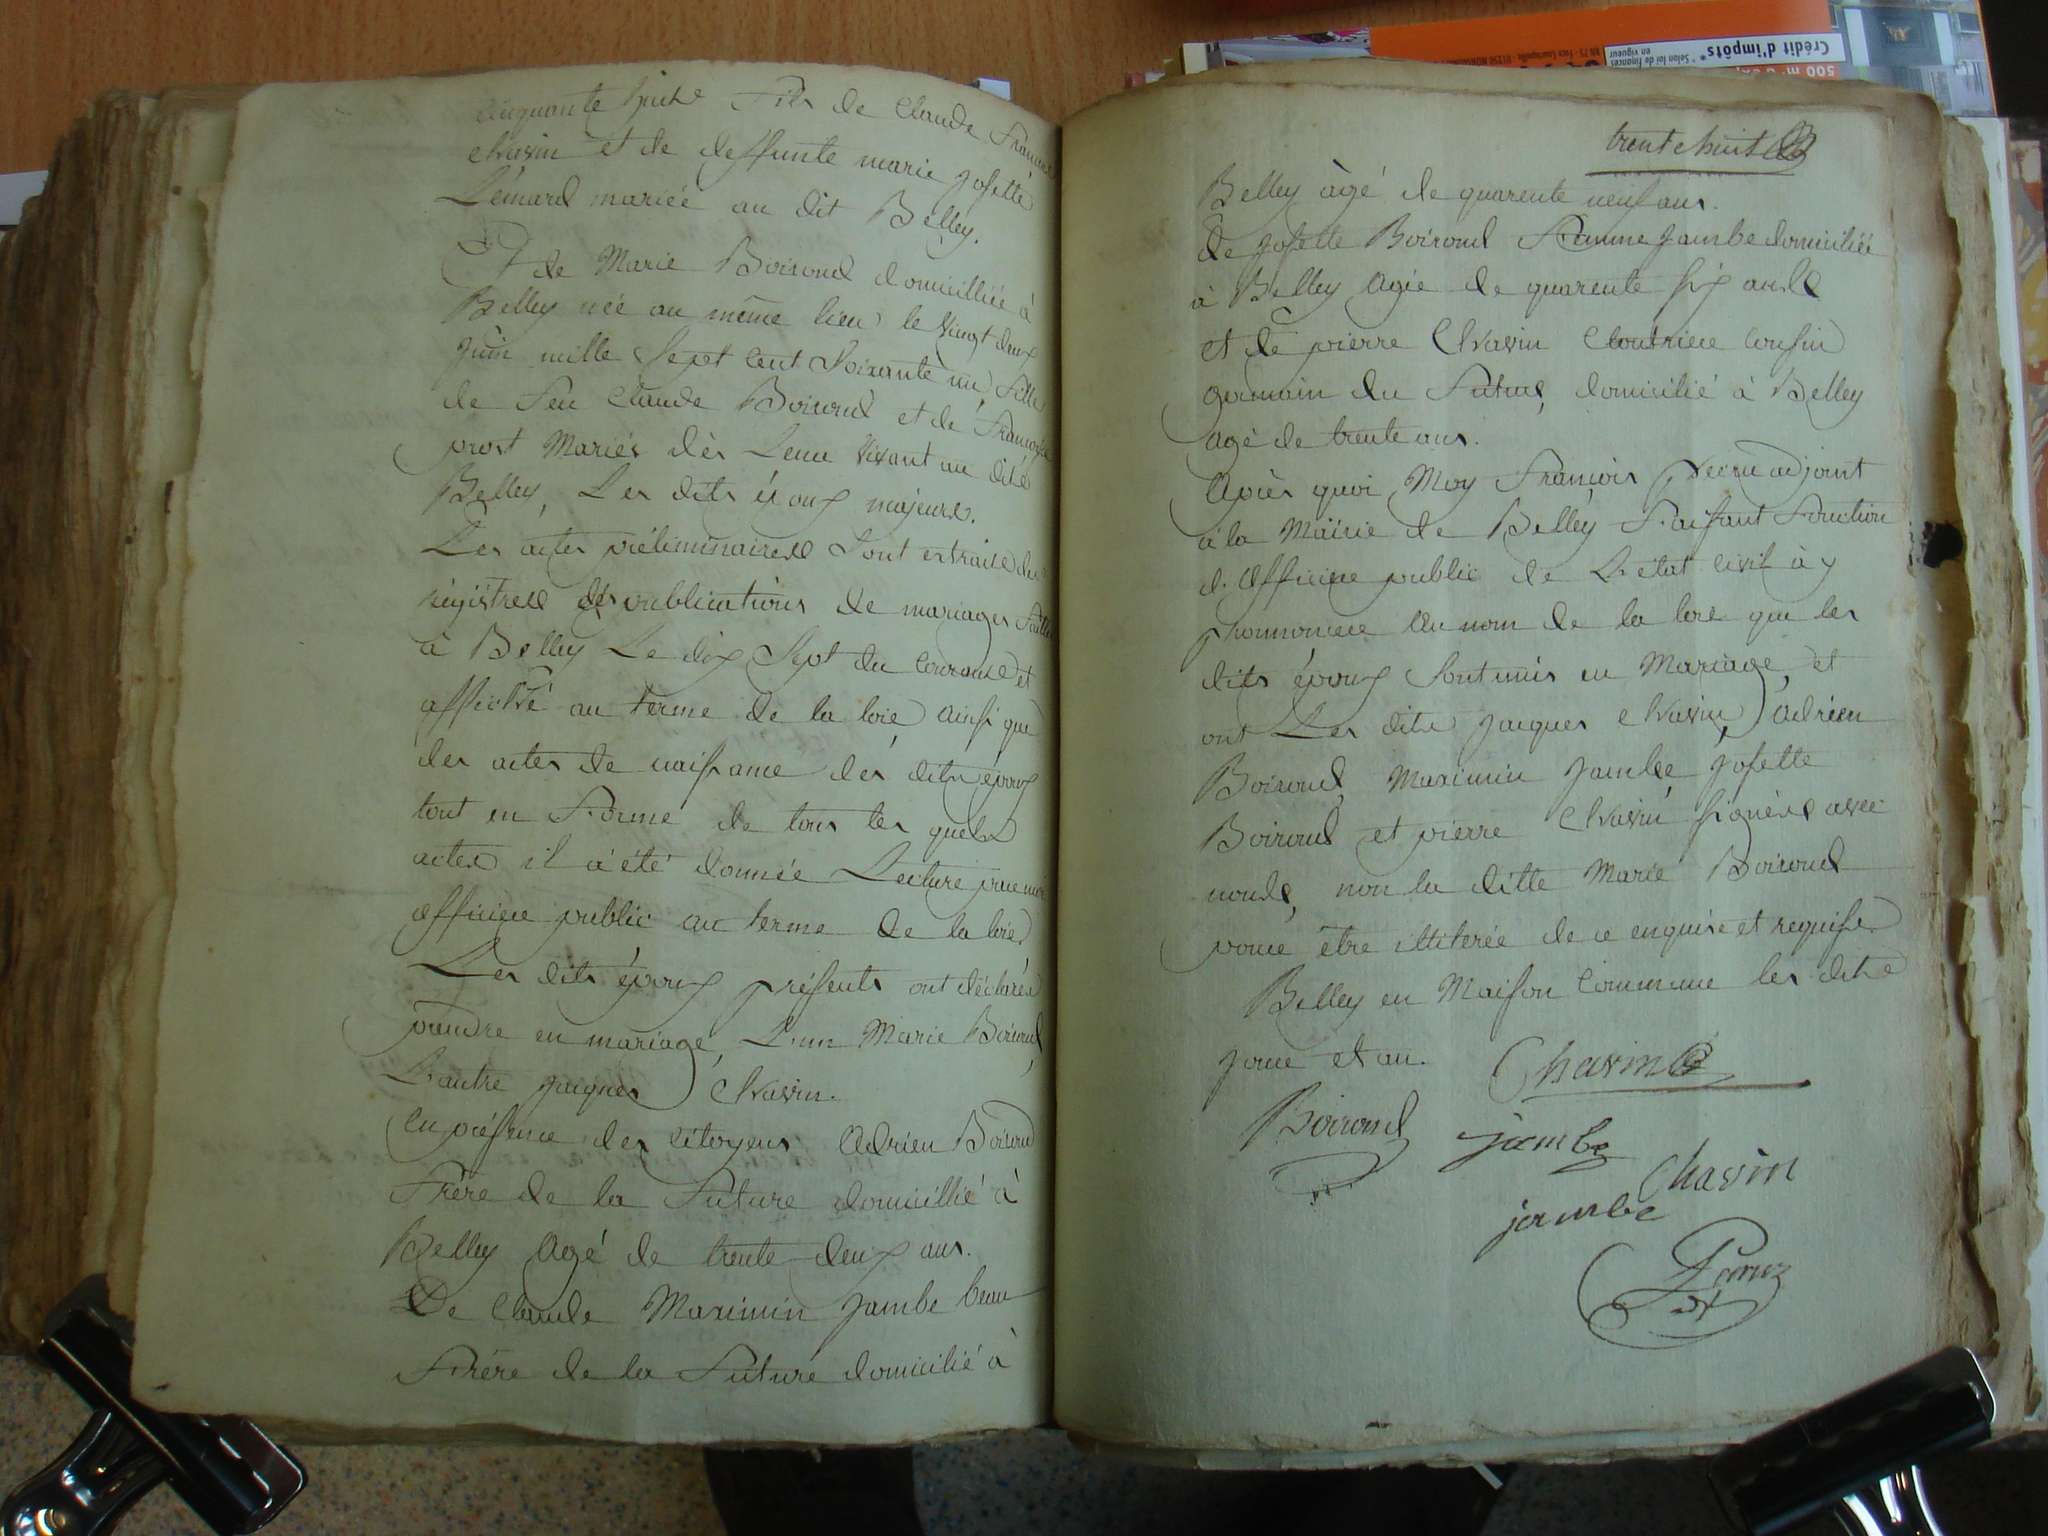 cinquante huit Fils de Claude François
Chavin et de deffunte marie Josette
Lémard mariée au dit Belley.
Et de Marie Boiroud domicilliée à
Belley née au même lieu le vingt deux
Juin mille Sept cent Soixante un, Fille
de Feu Claude Boiroud et de Françoise
prost Mariés dès Leur vivant au dit
Belley, Les dits époux majeurs.
Les actes préliminaires Sont extraits du
régistre des publications de mariages Faittes
à Belley Le dix Sept du Courant et
affiché au terme de la loie, ainsi que
des actes de naissance des dits époux
tout en Forme de tous les quels
actes il à été donnée Lecture par moi
officier public au terme de la loie
Les dits époux présents ont déclarés
prendre en mariage, L'un Marie Boiroud,
L'autre Jacques Chavin.
en présence des citoyens Adrien Boiroud
Frère de la Future domicillié à
Belley Agé de trente deux ans.
De Claude Maximin Jambe beau
Frère de la Future domicilié à
trente huit
Belley àgé de quarente neuf ans.
de Josette Boiroud Femme Jambe domiciliée
à Belley Agée de quarente six ans
et de pierre Chavin Cloutrier cousin
germain du Futur, domicilié à Belley
agé de trente ans.
Après quoi Moy François adjoint
à la Mairie de Belley Faisant Fonction
d'officier public de L'état civil ày
prononcer Au nom de la loie que les
dits époux Sont unis en Mariage, et
ont Les dits Jacques Chavin, Adrien
Boiroud, Maximin Jambe, Josette
Boiroud et pierre Chavin signés avec
nous, non la ditte Marie Boiroud
pour être illiterée de ce enquise et requise.
Belley en Maison Commune les dits
jour et an.
Chavin
Boiroud
jambe
Chavin
jambe
adt
Crédit d'impôts*
* Selon loi de finances
en vigueur